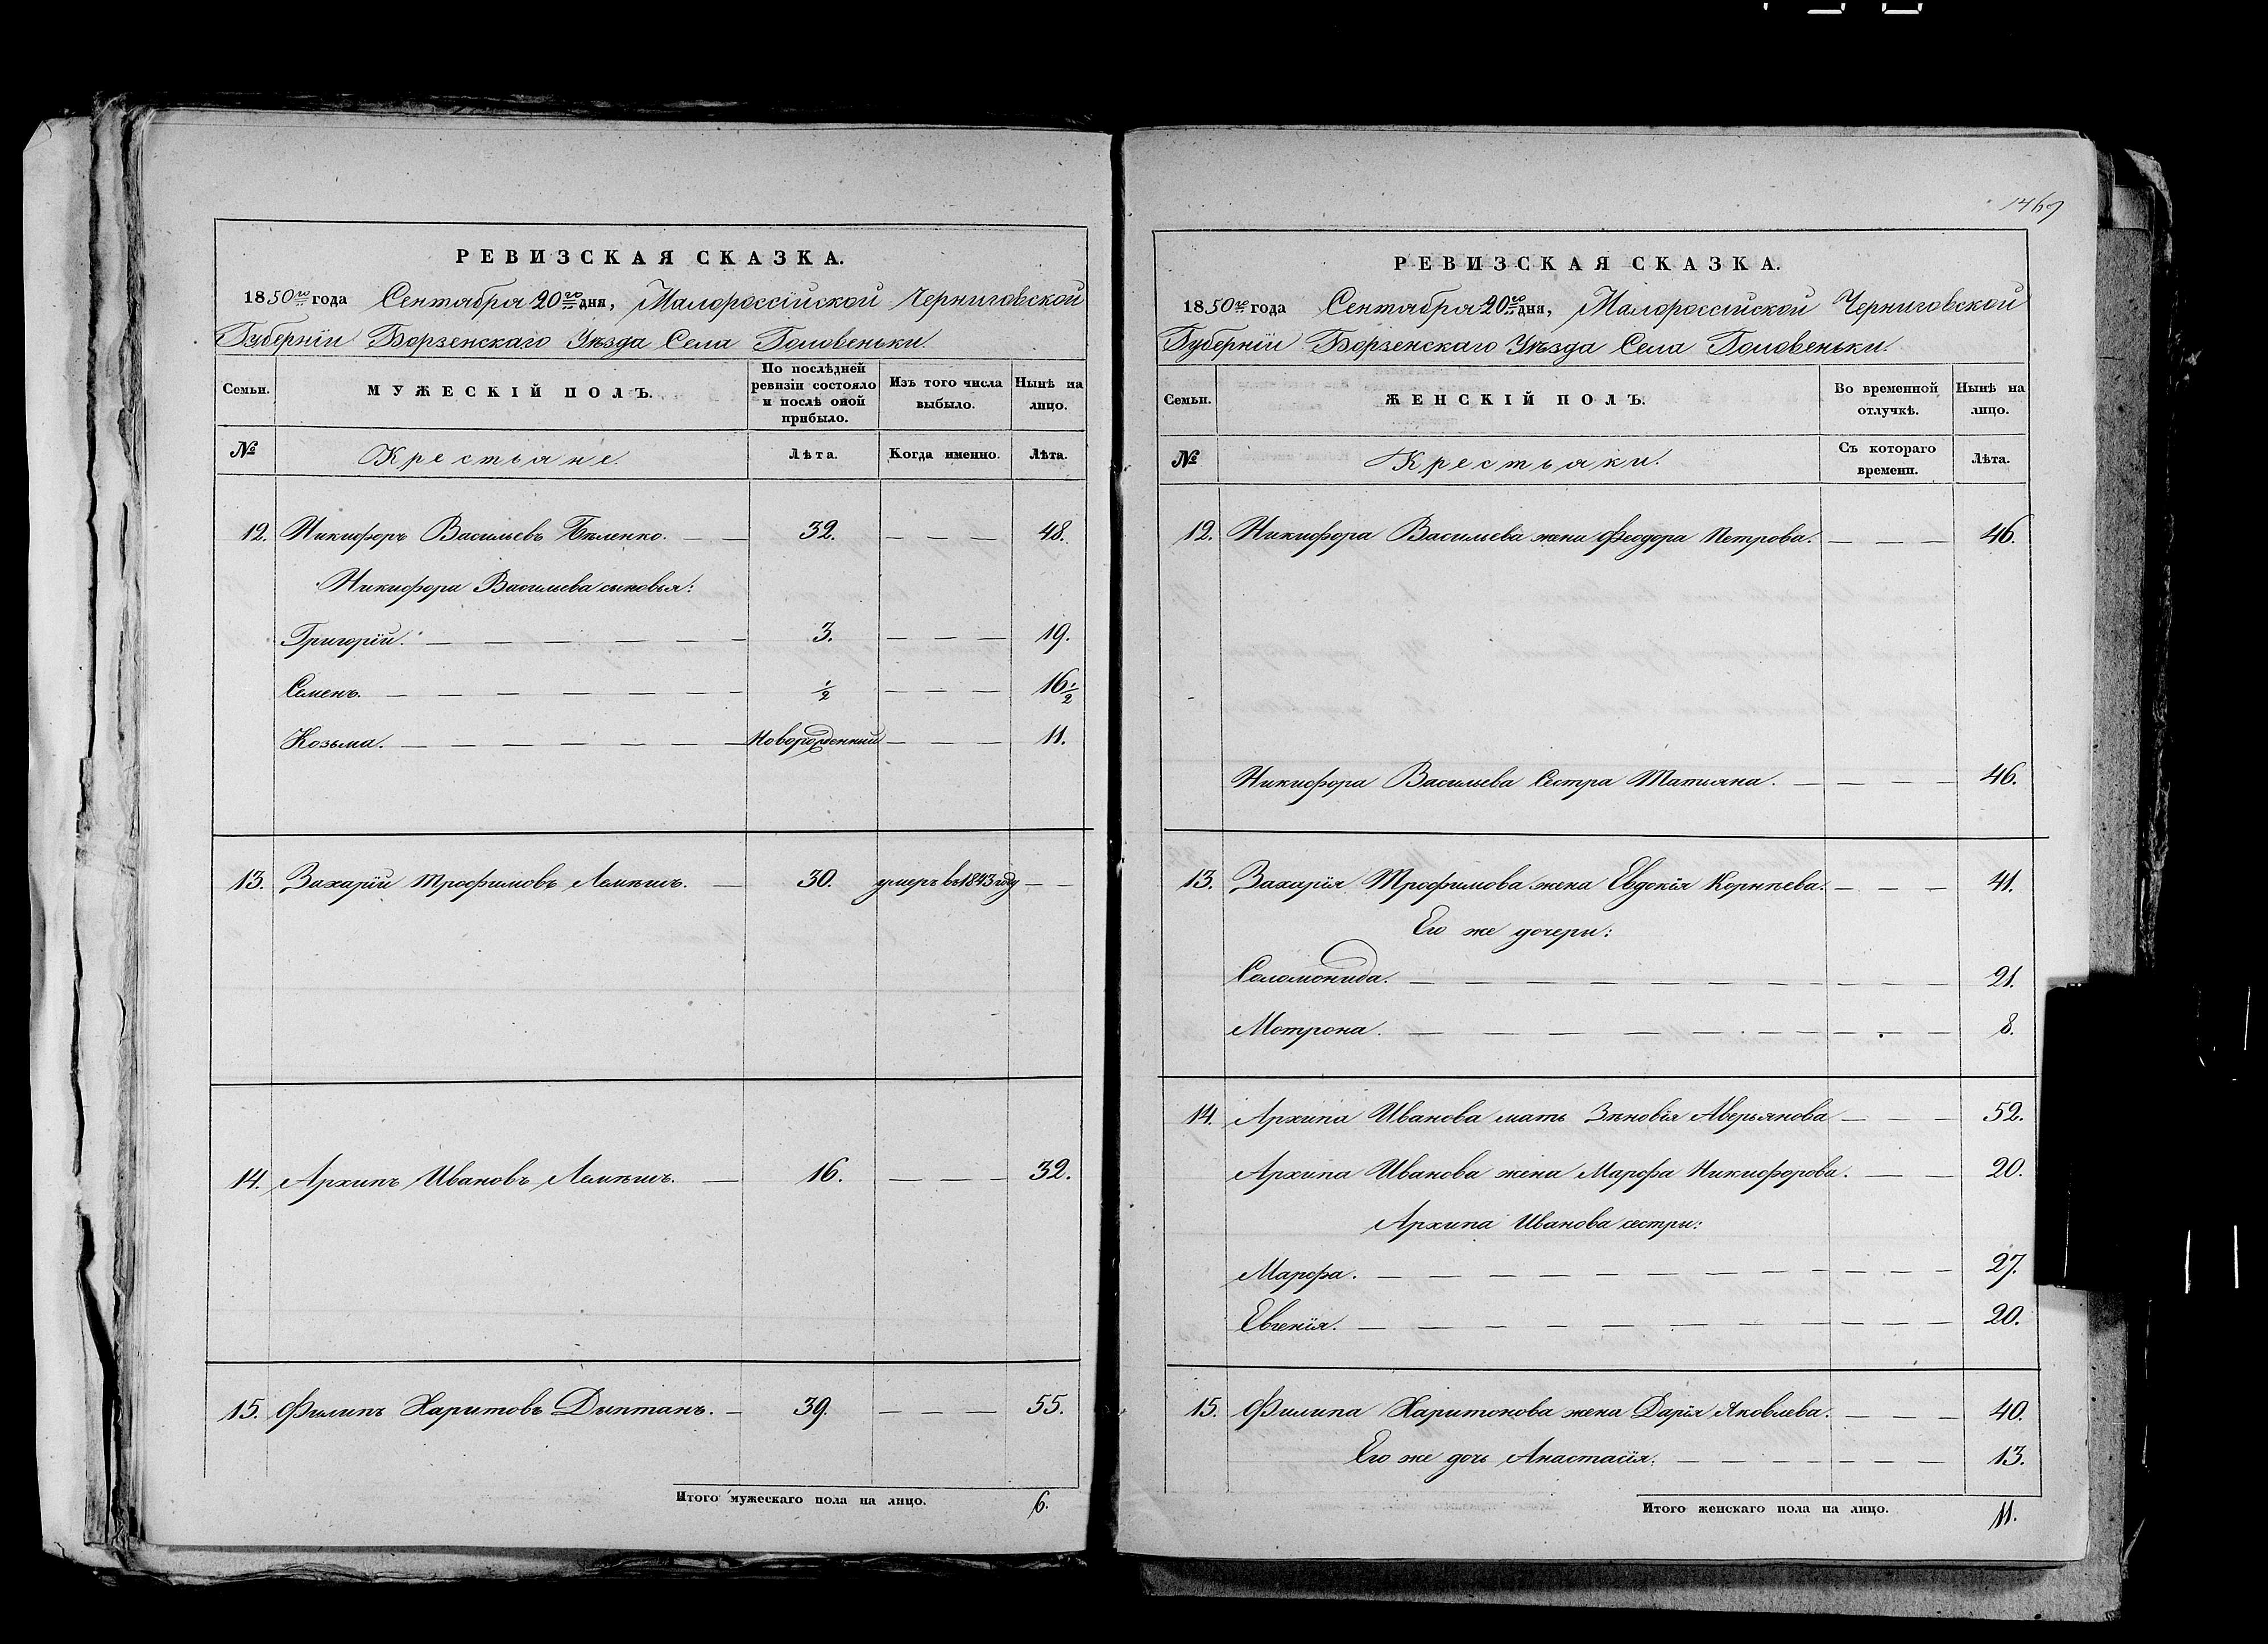 РЕВИЗСКАЯ СКАЗКА.
1850го года Сентября 20го дня, Малороссійской Черниговской
Губерніи Борзенскаго Уѣзда Села Головеньки.
Семьи. МУЖЕСКІЙ ПОЛЪ. По послѣдней ревизіи состояло и послѣ оной прибыло. Изъ того числа выбыло. Нынѣ на лицо.
№ Крестьяне. Лѣта. Когда именно. Лѣта.
12. Никифоръ Васильевъ Бѣленко. — — 32. — — — 48.
Никифора Васильева сыновья:
Григорій. — — — — — — 3. — — — 19.
Семенъ. — — — — — — — ½ — — — 16½
Козьма. — — — — — — — Новорожденный — — — 11.
13. Захарій Трофимовъ Лемѣшъ. — 30. умеръ въ 1843 году — —
14. Архипъ Ивановъ Лемѣшъ. — 16. — — — 32.
15. Филипъ Харитовъ Дыптанъ. — 39. — — — 55.
Итого мужескаго пола на лицо. 6.
1469
РЕВИЗСКАЯ СКАЗКА.
1850го года Сентября 20го дня, Малороссійской Черниговской
Губерніи Борзенскаго Уѣзда Села Головеньки.
Семьи. ЖЕНСКІЙ ПОЛЪ. Во временной отлучкѣ. Нынѣ на лицо.
№ Крестьяки. Съ котораго времени. Лѣта.
12. Никифора Васильева жена Феодора Петрова. — — — 46.
Никифора Васильева Сестра Татияна. — — — — 46.
13. Захарія Трофимова жена Евдокія Корнѣева. — — — 41.
Его же дочери:
Соломонида. — — — — — — — — — — — 21.
Мотрона. — — — — — — — — — — 8.
14. Архипа Иванова мать Зѣновія Аверьянова — — — 52.
Архипа Иванова жена Марфа Никифорова. — — 20.
Архипа Иванова сестри:
Марфа. — — — — — — — — — — — — 27.
Евгенія. — — — — — — — — — — — — 20.
15. Филипа Харитонова жена Дарія Яковлева. — — — 40.
Его же дочь Анастасія. — — — — — — — — 13.
Итого женскаго пола на лицо. 11.